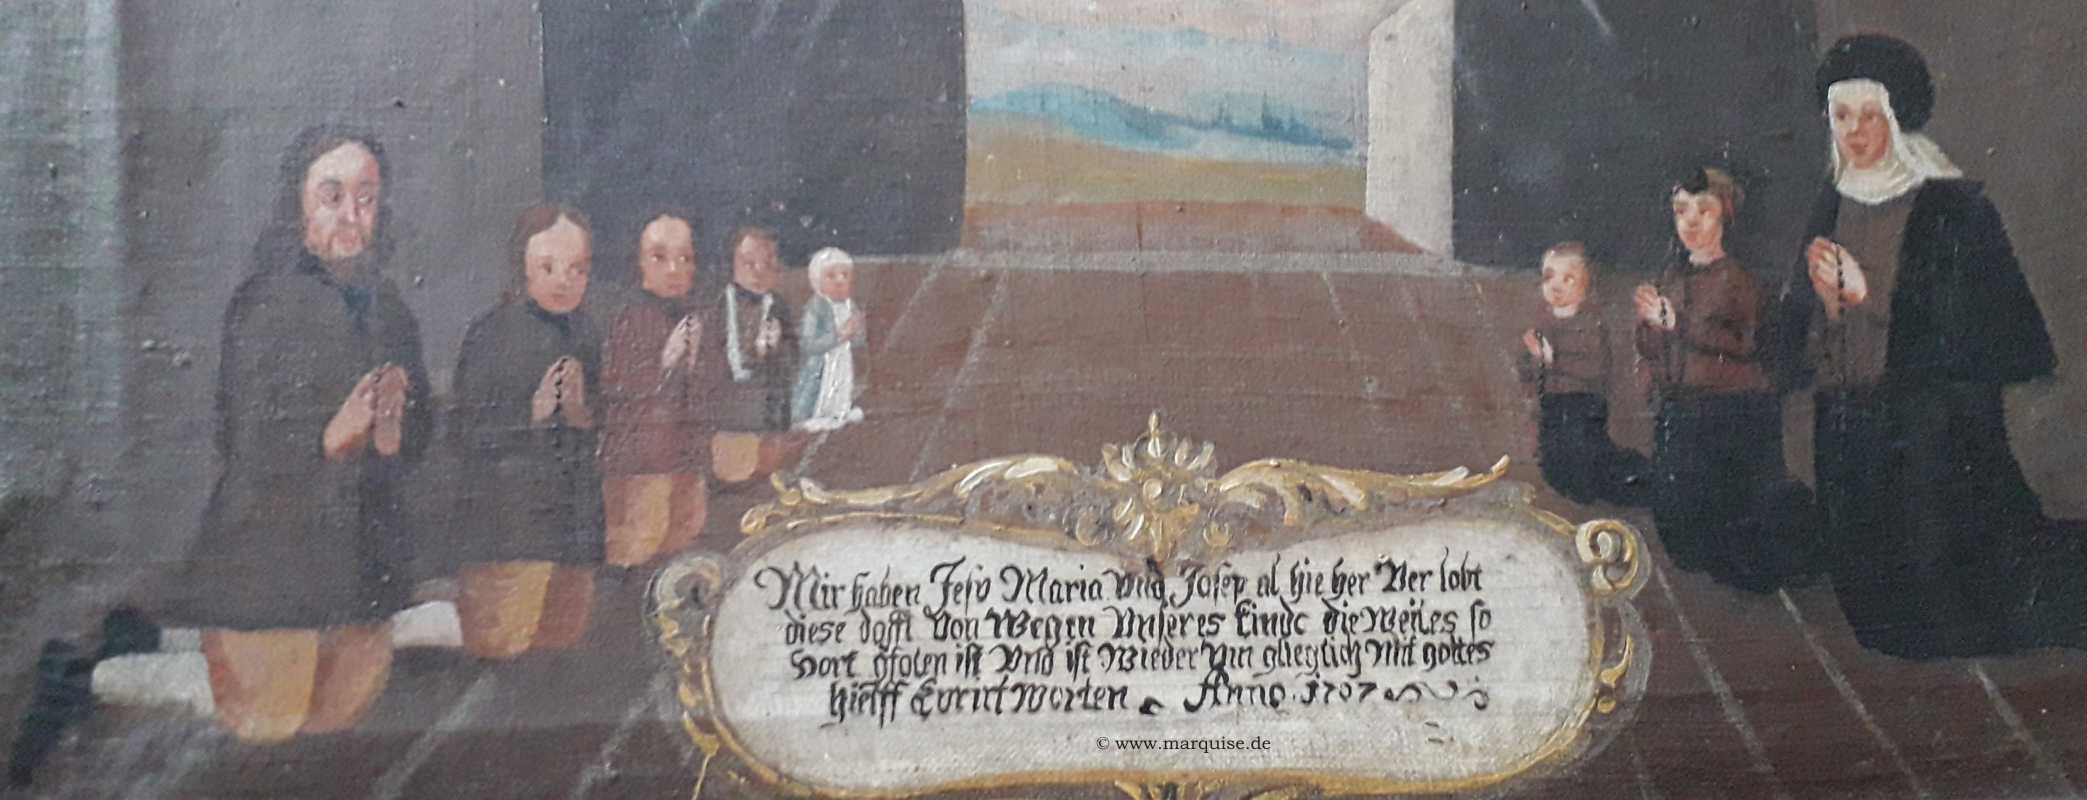 Mir haben Jesu Maria Vnd Josep al hie her Ver lobt
diese daffl Von Wegen Vnseres Kindt die Weil es so
hort gfolen ist Vnd ist Wieder Vm glieglich Mit gottes
hielff Kuriert Worten Anno. 1707
© www.marquise.de